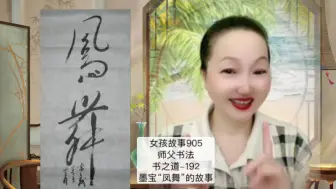 鳳舞
女孩故事905
师父书法
书之道-192
墨宝“凤舞”的故事